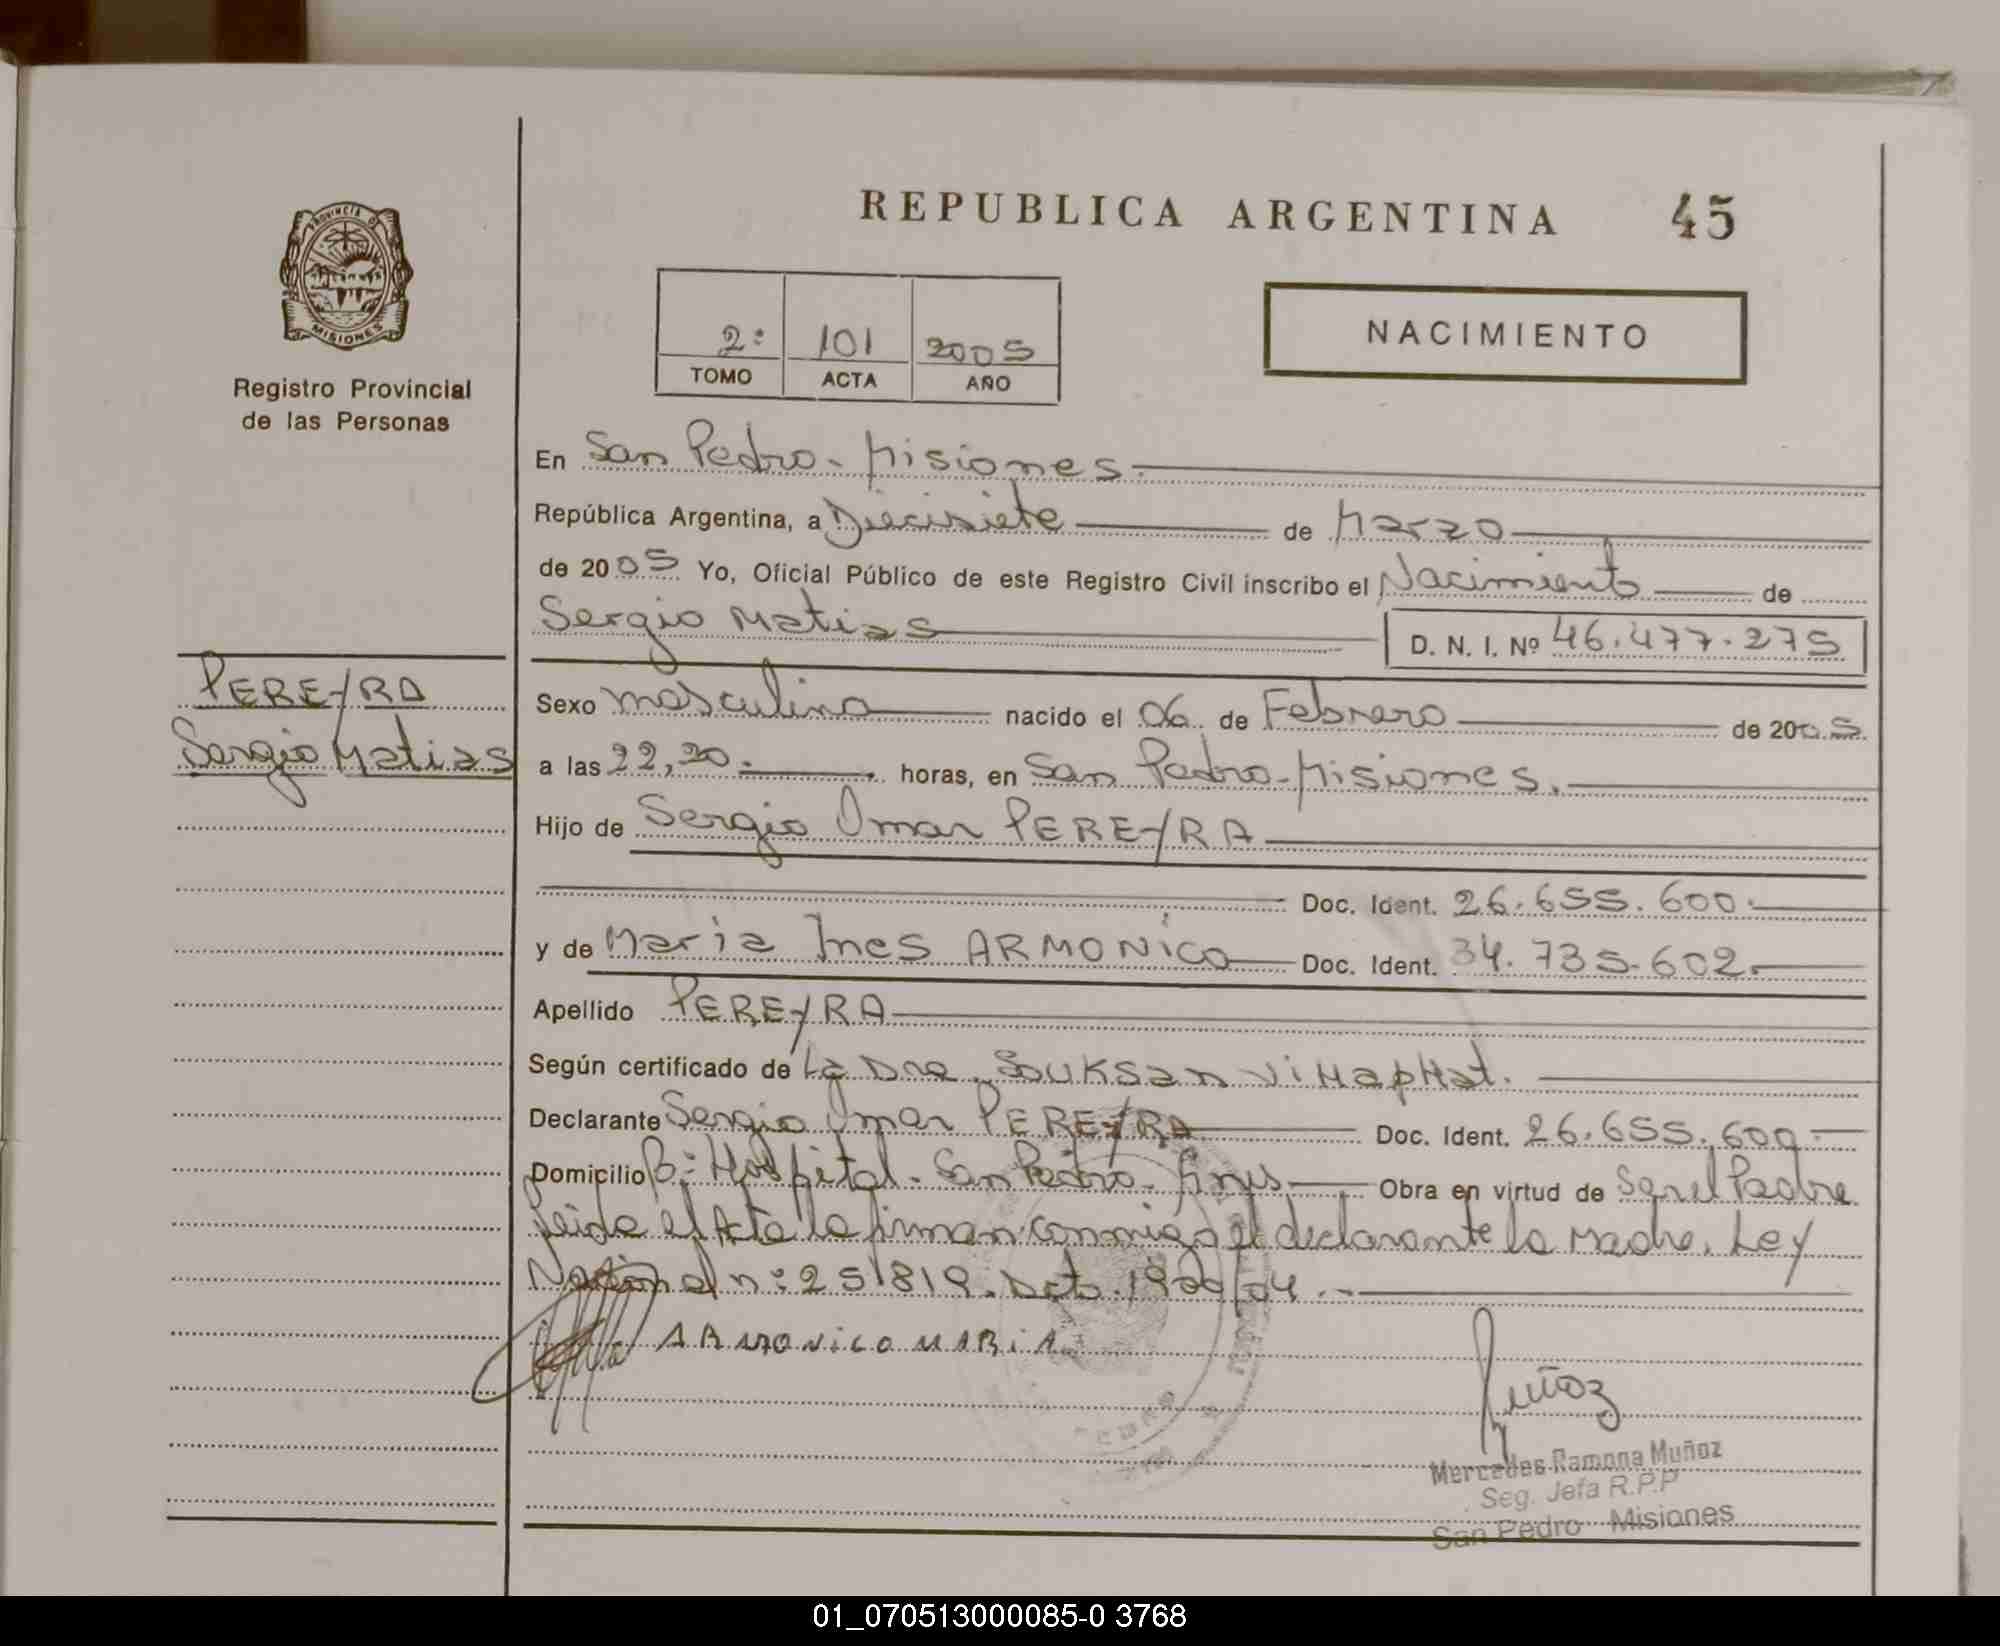 REPUBLICA ARGENTINA 45
PROVINCIA DE
MISIONES
Registro Provincial
de las Personas
2: 101 2005
TOMO ACTA AÑO
NACIMIENTO
En San Pedro - Misiones.
República Argentina, a Diecisiete de Marzo
de 2005 Yo, Oficial Público de este Registro Civil inscribo el Nacimiento de
Sergio Matias D. N. I. Nº 46.477.275
PEREYRA
Sergio Matias
Sexo masculino nacido el 06 de Febrero de 2005
a las 22,20. horas, en San Pedro - Misiones.
Hijo de Sergio Omar PEREYRA
Doc. Ident. 26.655.600.
y de Maria Ines ARMONICO Doc. Ident. 34.735.602.
Apellido PEREYRA
Según certificado de La Dra. Souksan Vimaphat.
Declarante Sergio Omar PEREYRA Doc. Ident. 26.655.600.
Domicilio Bº Hospital - San Pedro - Mnes Obra en virtud de Ser el Padre
Leida el Acta la firman conmigo el declarante la Madre. Ley
Nacional n: 251819. Dcto. 1900/04.
ARMONICO MARIA
Muñoz
Mercedes Ramona Muñoz
Seg. Jefa R.P.P
San Pedro Misiones
01_070513000085-0 3768